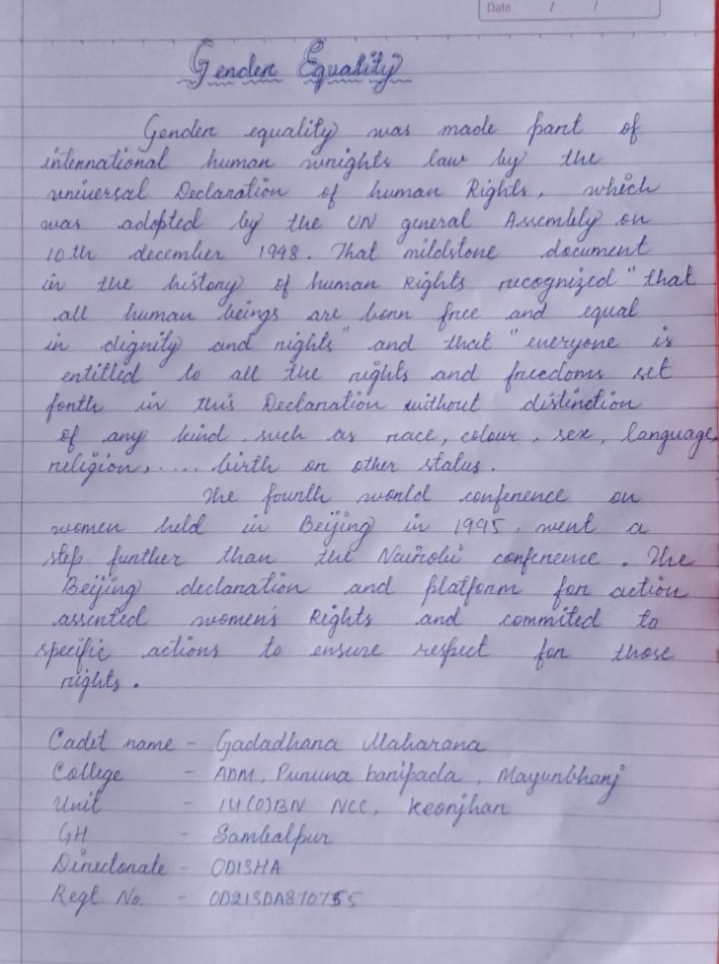 Date / /
Gender Equality
Gender equality was made part of
international human wrights law by the
universal Declaration of human Rights, which
was adopted by the UN general Assembly on
10th december 1948. That mildstone document
in the history of human Rights recognized "that
all human beings are born free and equal
in dignity and rights" and that "everyone is
entitled to all the rights and freedoms set
forth in this Declaration without distinction
of any kind, such as race, colour, sex, language,
religion,.... birth or other status.
The fourth world conference on
women held in Beijing in 1995, went a
step further than the Nairobi conference. The
Beijing declaration and platform for action
asserted women's Rights and commited to
specific actions to ensure respect for those
rights.
Cadet name - Gadadhara Maharana
College - ADM, Puruna banipada, Mayurbhanj
Unit - 14(O)BN NCC, Keonjhar
GH - Sambalpur
Directorate - ODISHA
Regt. No. - OD21SDA870755